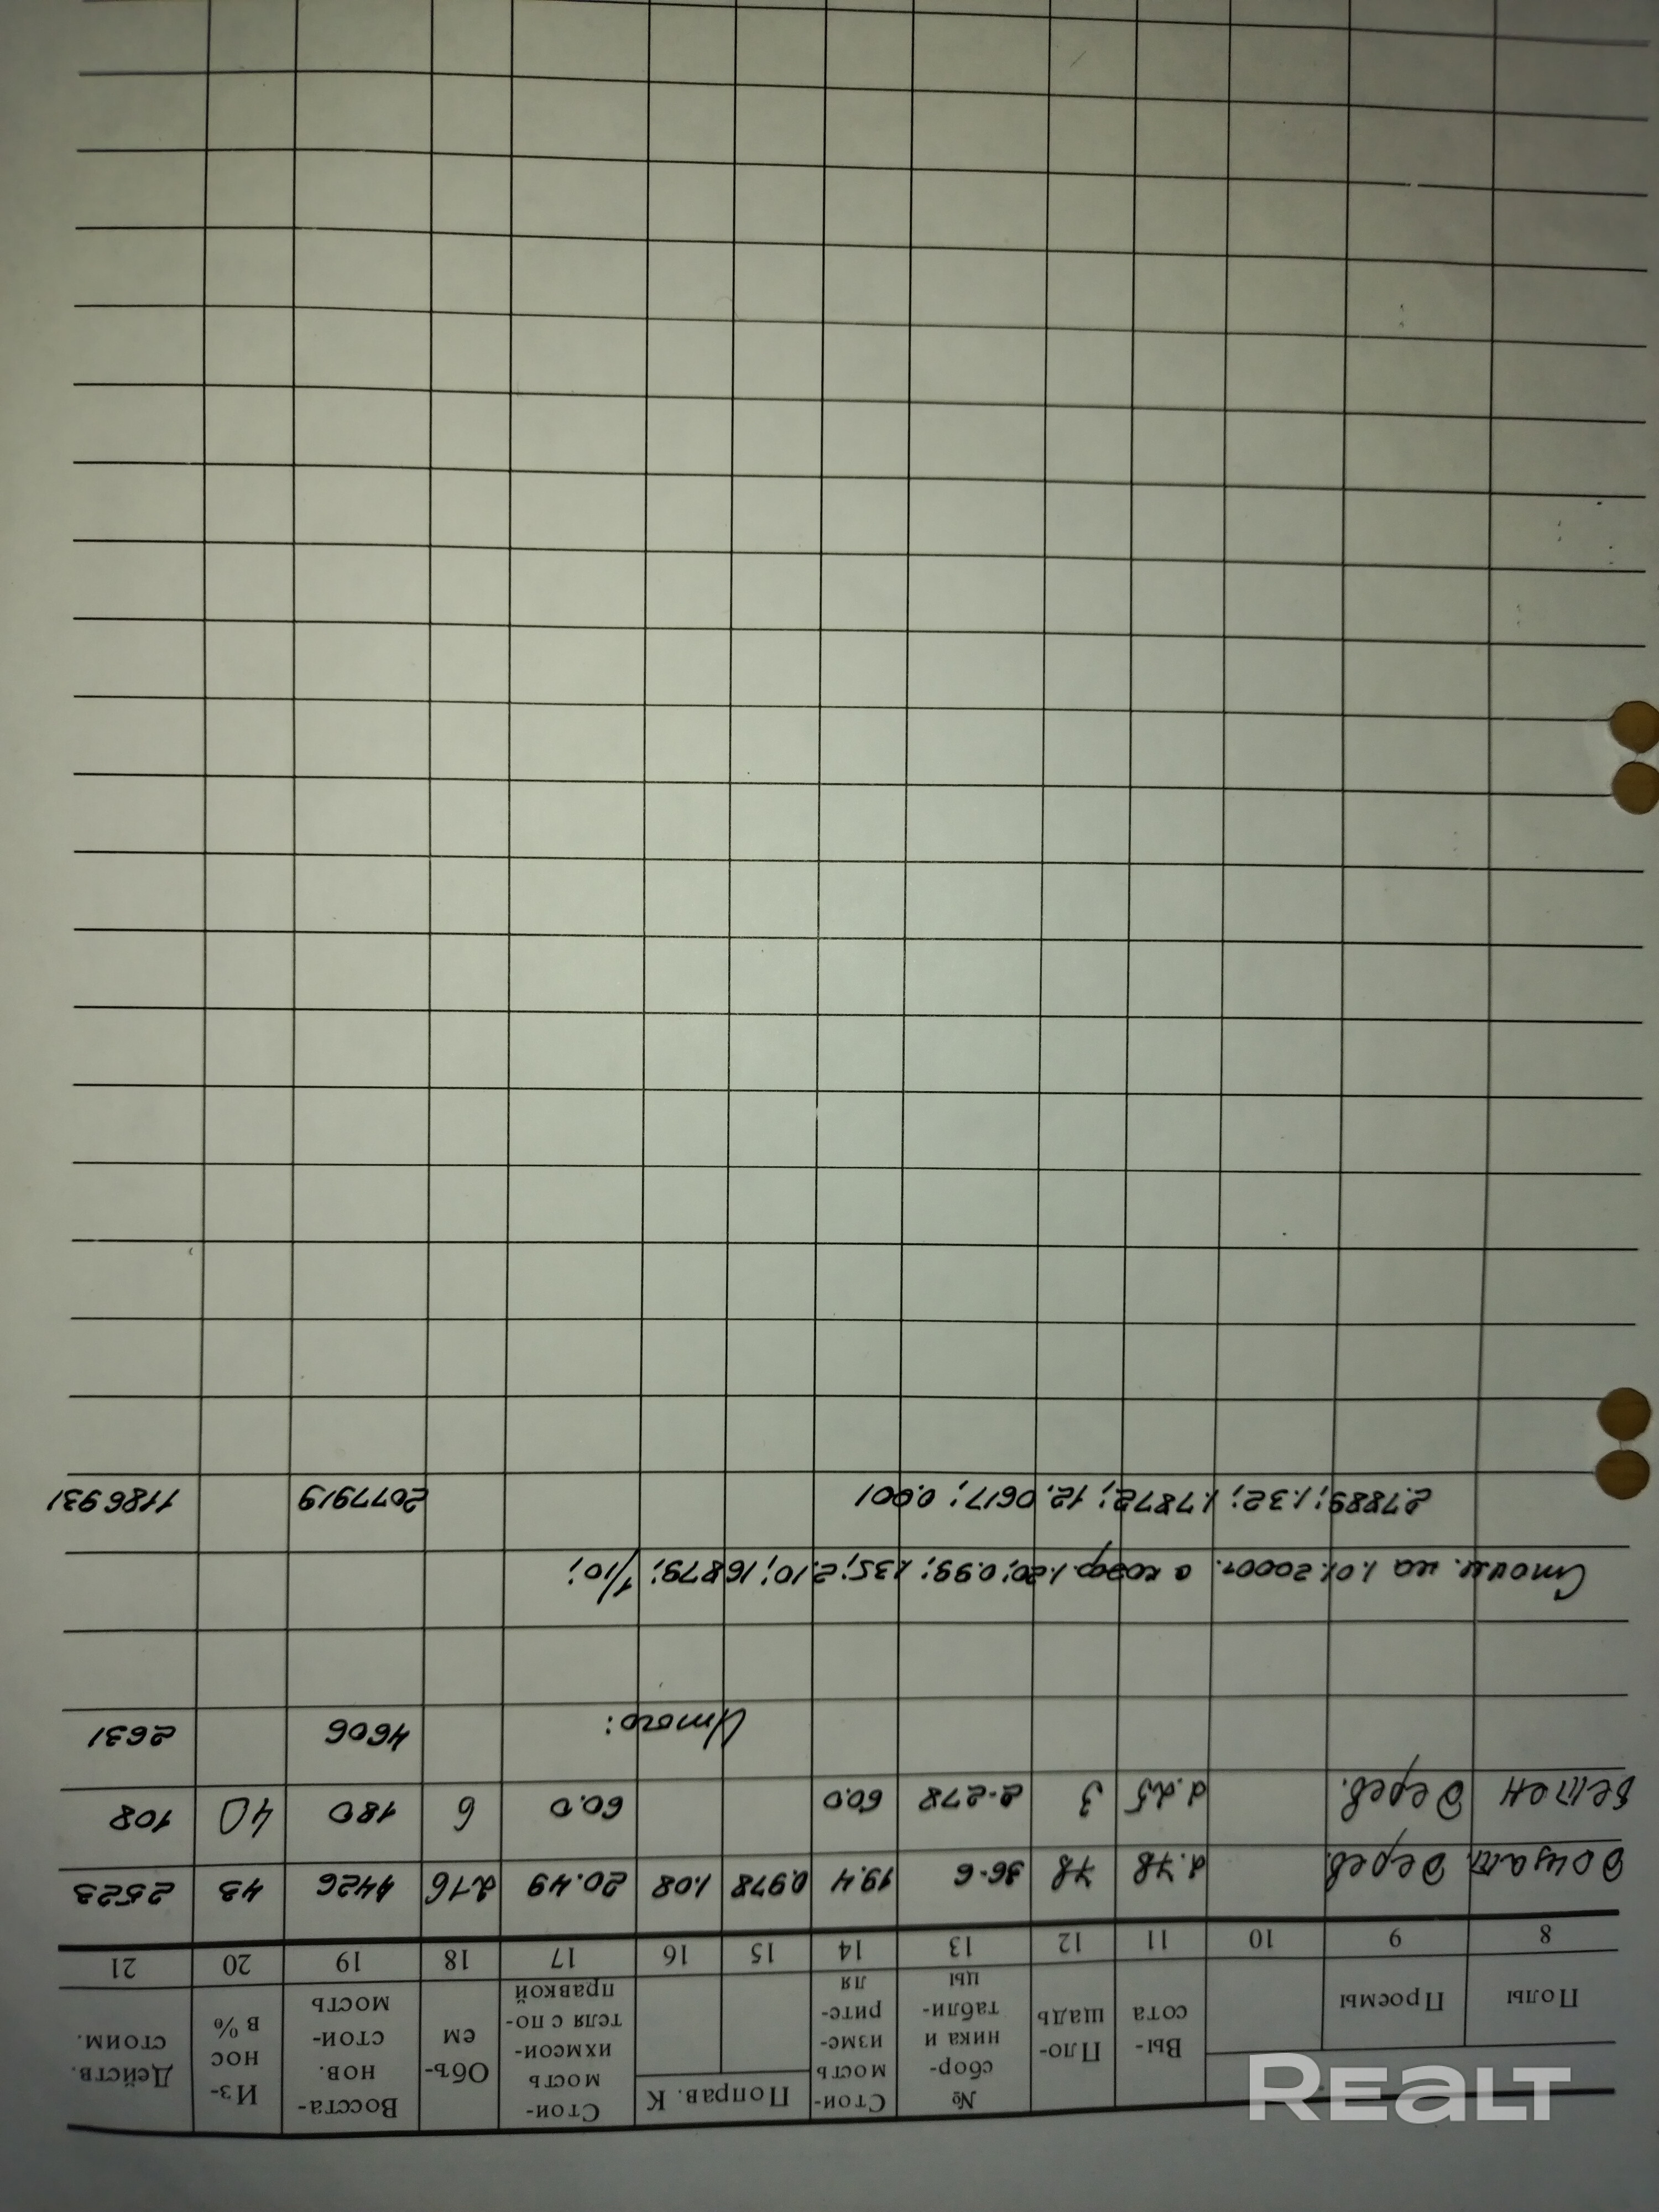 Полы Проемы Вы-сота Пло-щадь № сбор-ника и табли-цы Стои-мость изме-рите-ля Поправ. К Стои-мость ихмсои-теля с по-правкой Объ-ем Восста-нов. стои-мость Из-нос в % Действ. стоим.
8 9 10 11 12 13 14 15 16 17 18 19 20 21
дощат. дерев. 2.78 78 36-6 19.4 0.978 1.08 20.49 216 4426 43 2523
бетон дерев. 2.25 3 2-278 60.0 60.0 6 180 40 108
Итого: 4606 2631
Стоим. на 1.01.2000г. с коэф. 1.20; 0.99; 1.35; 2.10; 16879; 1/10;
2.7889; 1.32; 1.7872; 12.0617; 0.001 2077919 1186931
REALT